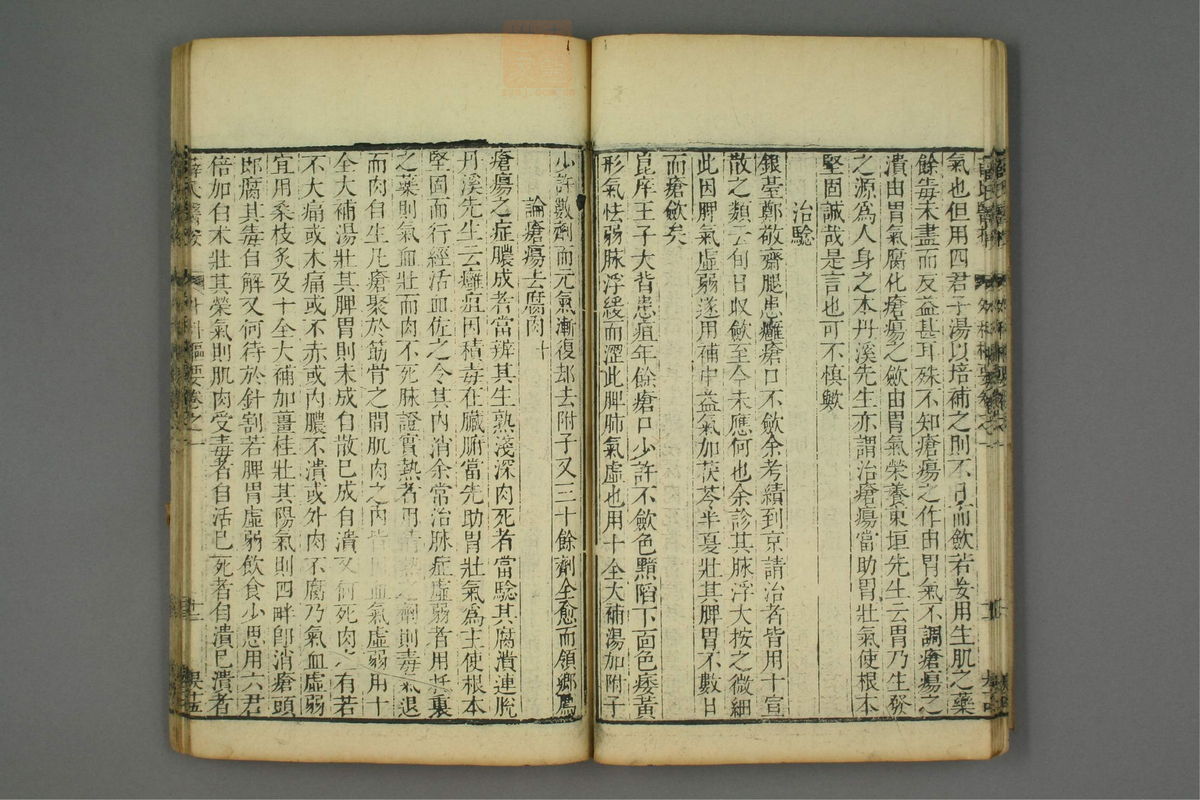 氣也但用四君子湯以培補之則不日而歛若妄用生肌之藥
餘毒未盡而反益甚耳殊不知瘡瘍之作由胃氣不調瘡瘍之
潰由胃氣腐化瘡瘍之歛由胃氣榮養東垣先生云胃乃生發
之源爲人身之本丹溪先生亦謂治瘡瘍當助胃壯氣使根本
堅固誠哉是言也可不慎歟
治驗
銀臺鄭敬齋腿患癰瘡口不歛余考績到京請治者皆用十宣
散之類云旬日収歛至今未應何也余診其脉浮大按之微細
此因脾氣虛弱遂用補中益氣加茯苓半夏壯其脾胃不數日
而瘡歛矣
崑庠王子大背患疽年餘瘡口少許不歛色黯陷下面色痿黃
形氣怯弱脉浮緩而澀此脾肺氣虛也用十全大補湯加附子
少許數劑而元氣漸復却去附子又三十餘劑全愈而領鄉薦
論瘡瘍去腐肉 十
瘡瘍之症膿成者當辨其生熟淺深肉死者當驗其腐潰連脫
丹溪先生云癰疽因積毒在臟腑當先助胃壯氣爲主使根本
堅固而行經活血佐之令其內消余常治脉症虛弱者用托裏
之藥則氣血壯而肉不死脉證實熱者用清熱之劑則毒氣退
而肉自生凡瘡聚於筋骨之間肌肉之內皆因血氣虛弱用十
全大補湯壯其脾胃則未成自散已成自潰又何死肉之有若
不大痛或木痛或不赤或內膿不潰或外肉不腐乃氣血虛弱
宜用桑枝炙及十全大補加薑桂壯其陽氣則四畔卽消瘡頭
卽腐其毒自解又何待於針割若脾胃虛弱飲食少思用六君
倍加白朮壯其榮氣則肌肉受毒者自活已死者自潰已潰者
薛氏醫案
卷之一
十二